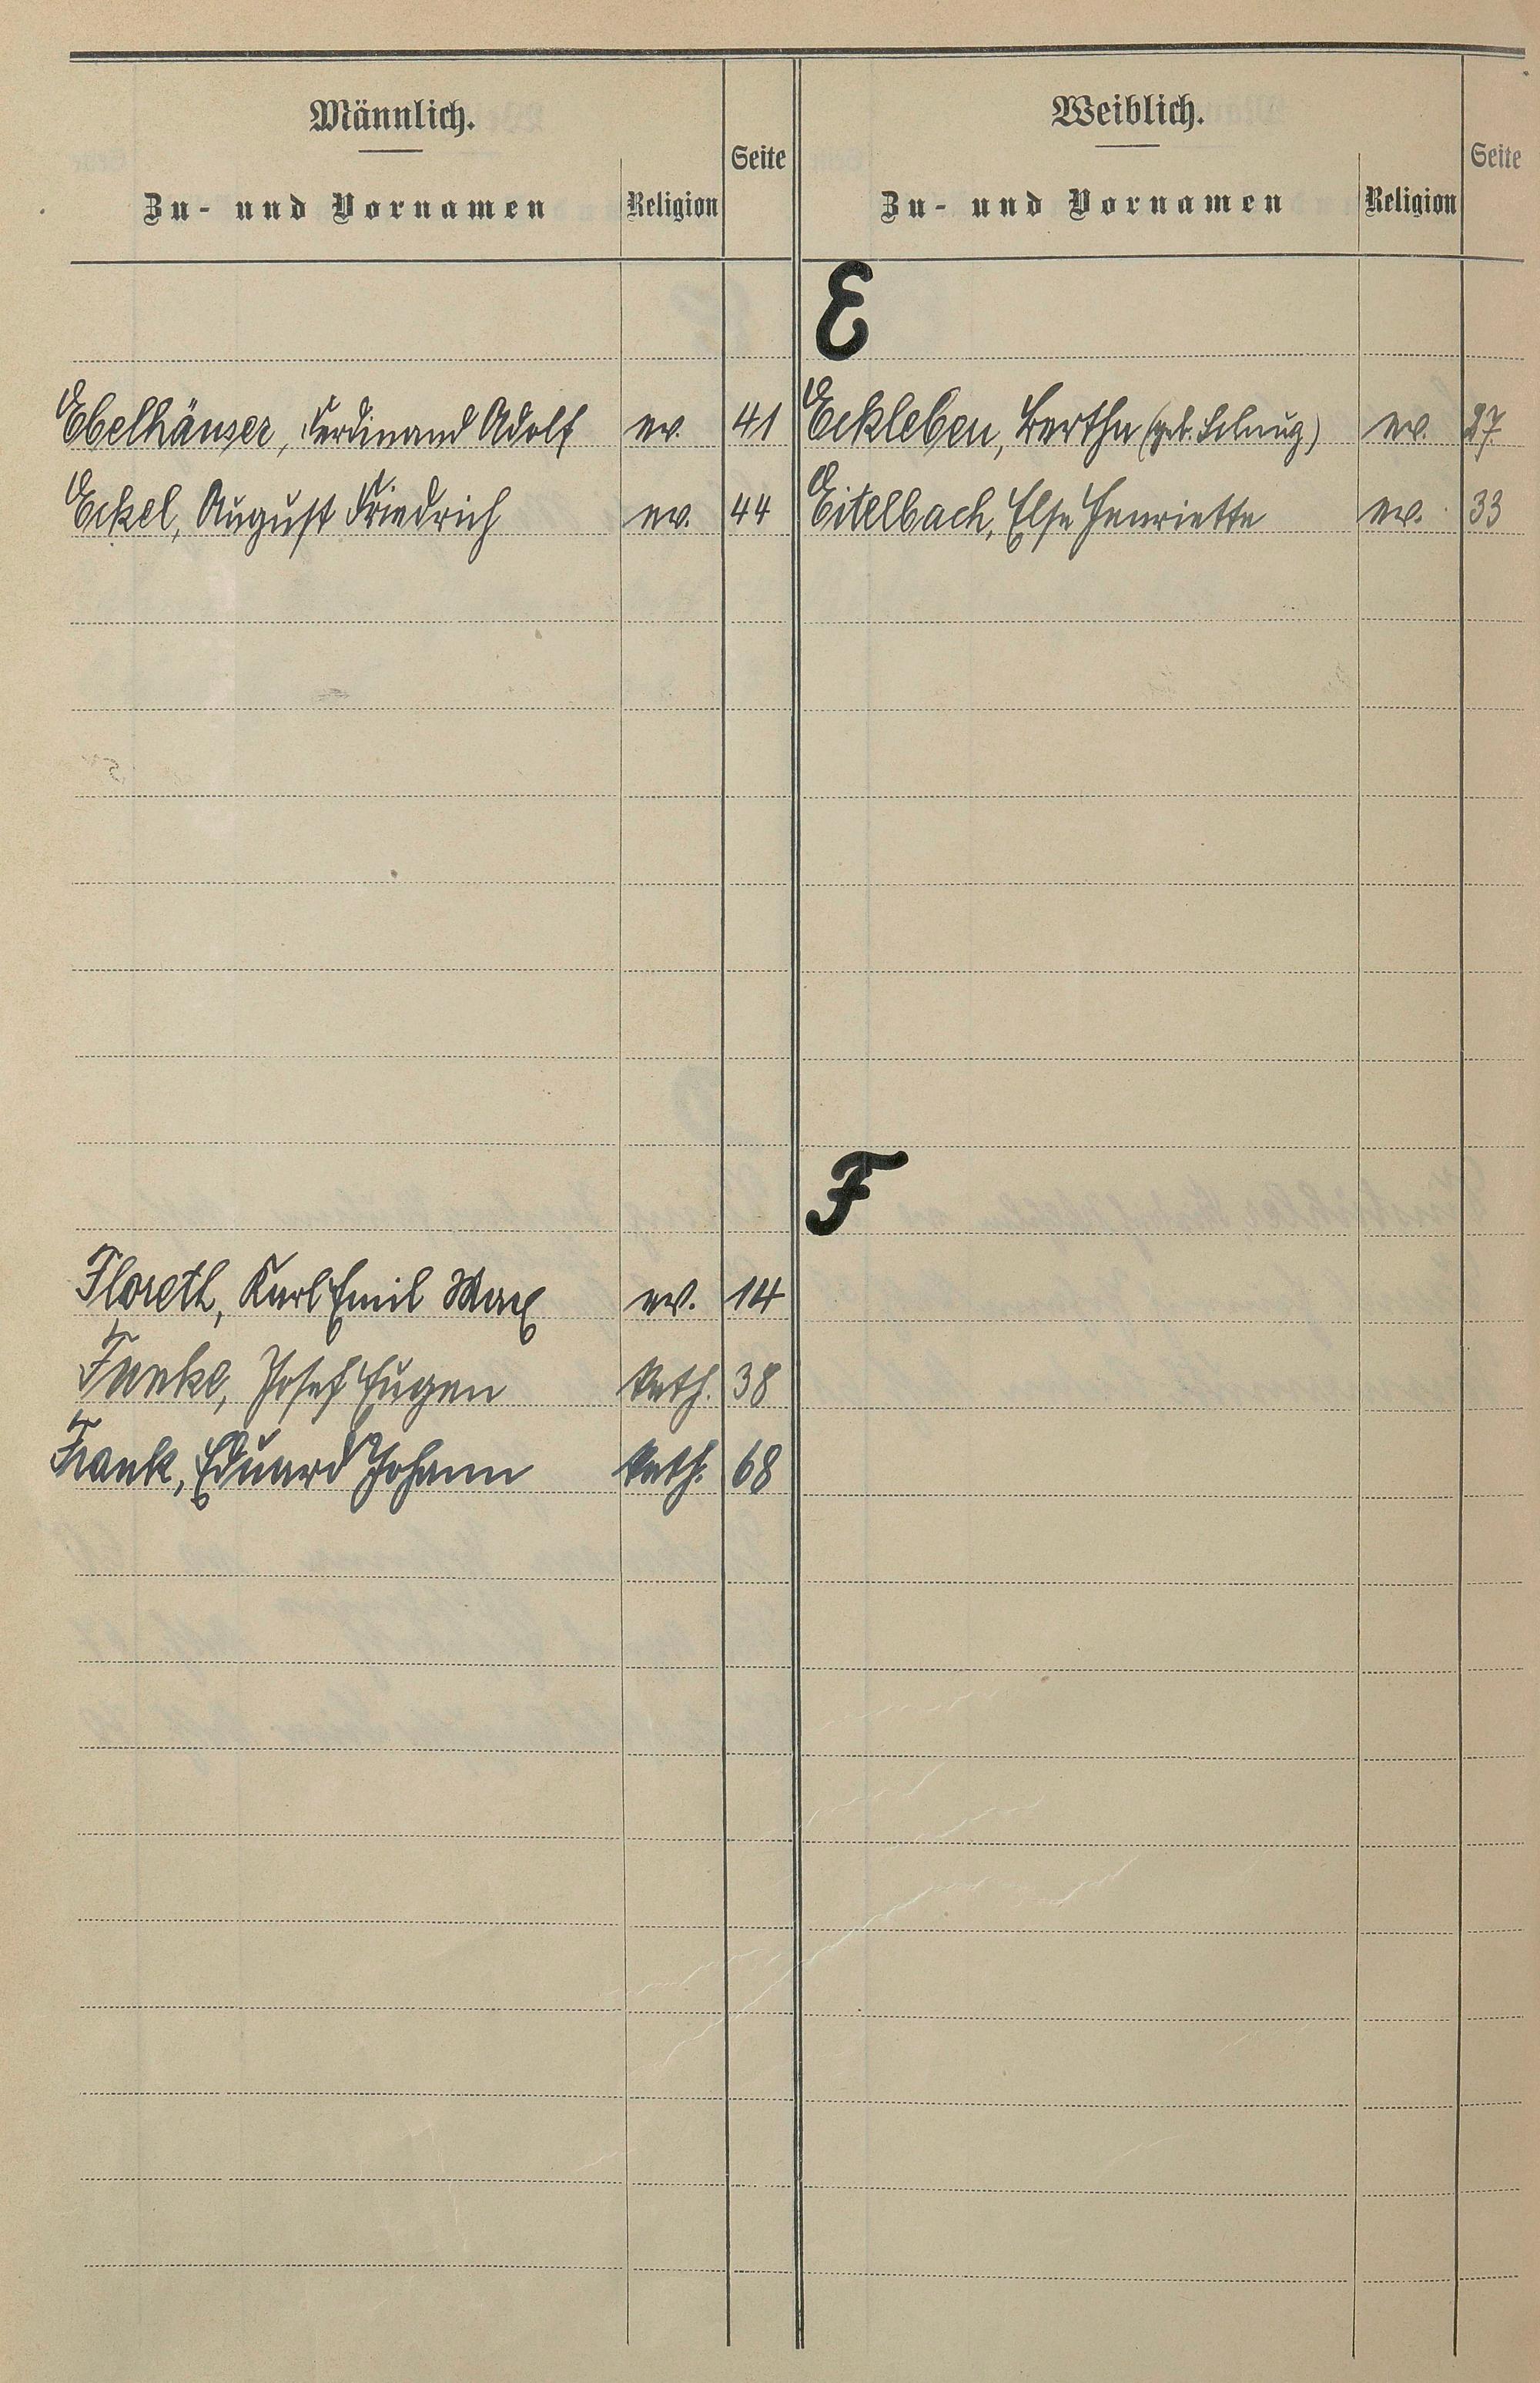 Männlich.
Zu- und Vornamen Religion Seite
Weiblich.
Zu- und Vornamen Religion Seite
E
Ebelhäuser, Ferdinand Adolf ev. 41
Eckleben, Bertha (geb. ) ev. 27
Eckel, August Friedrich ev. 44
Eitelbach, Else Henriette ev. 33
F
Floreth, Karl Emil Max ev. 14
Funke, Josef Eugen kath. 38
Frank, Eduard Johann kath. 68